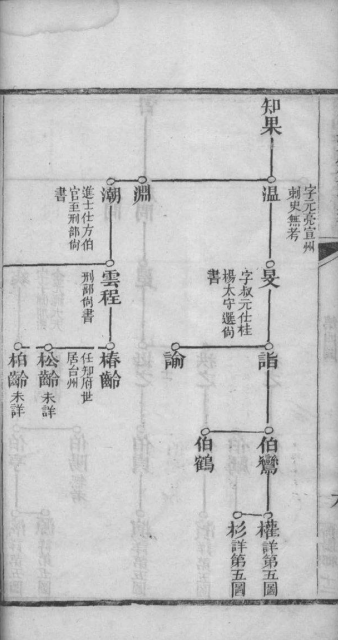 知果
温
字元亮宣州
刺史無考
淵
潮
進士仕方伯
官至刑部尙
書
旻
字叔元仕桂
楊太守選尙
書
雲程
刑部尙書
詣
諭
椿齡
任知府世
居台州
松齡
未詳
柏齡
未詳
伯鸞
伯鶴
權
詳第五圖
杉
詳第五圖